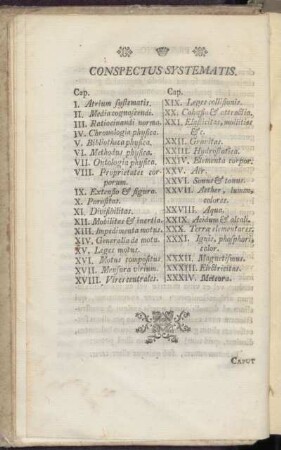 CONSPECTUS SYSTEMATIS.
Cap.
I. Atrium systematis.
II. Media cognoscendi.
III. Ratiocinandi norma.
IV. Chronologia physica.
V. Bibliotheca physica.
VI. Methodus physica.
VII. Ontologia physica.
VIII. Proprietates corporum.
IX. Extensio & figura.
X. Porositas.
XI. Divisibilitas.
XII. Mobilitas & inertia.
XIII. Impedimenta motus.
XIV. Generalia de motu.
XV. Leges motus.
XVI. Motus compositus
XVII. Mensura virium.
XVIII. Vires centrales.
Cap.
XIX. Leges collisionis.
XX. Cohæsio & attractio.
XXI. Elasticitas, mollities
&c.
XXII. Gravitas.
XXIII. Hydrostatica.
XXIV. Elementa corpor.
XXV. Aër.
XXVI. Sonus & tonus.
XXVII. Aether, lumen,
colores.
XXVIII. Aqua.
XXIX. Acidum & alcali.
XXX. Terræ elementares.
XXXI. Ignis, phosphori,
calor.
XXXII. Magnetismus.
XXXIII. Electricitas.
XXXIV. Meteora.
CAPUT